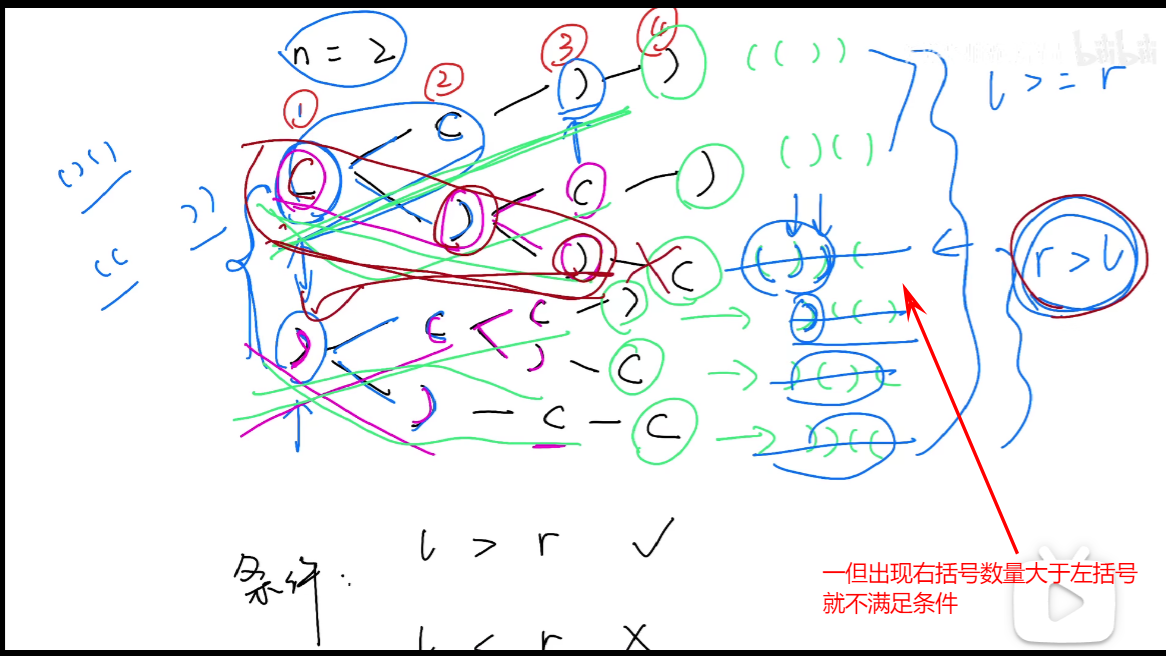 n = 2
① ② ③ ④
( ( ) ) ( ( ) )
l >= r
( ) ( )
( ) ) ( ) ( ) ( )
) )
( (
( ) ( ) ) (
( ) ) (
r > l
) ( ( ) ) ( ( )
) ( ) ( ) ( )
) ( ( ) ) ( (
l > r ✓
条件:
一但出现右括号数量大于左括号
就不满足条件
l < r ×